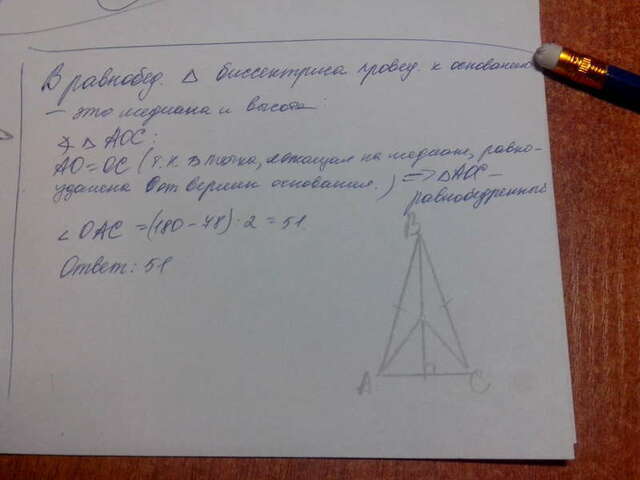 В равнобед. △ биссектриса провед. к основанию
– это медиана и высота.
∢ △ AOC:
AO = OC (т.к. В точка, лежащая на медиане, равно-
удалена от вершин основания.) ⇒ △AOC –
равнобедренный
∠OAC = (180 – 78) : 2 = 51.
Ответ: 51
B
A
C